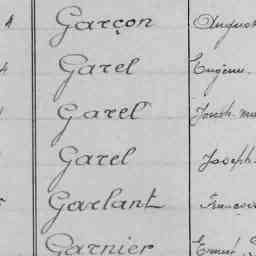 4 Garçon August
4 Garel Eugène
Garel
Garel Joseph
Garlant François
Garnier Ernest